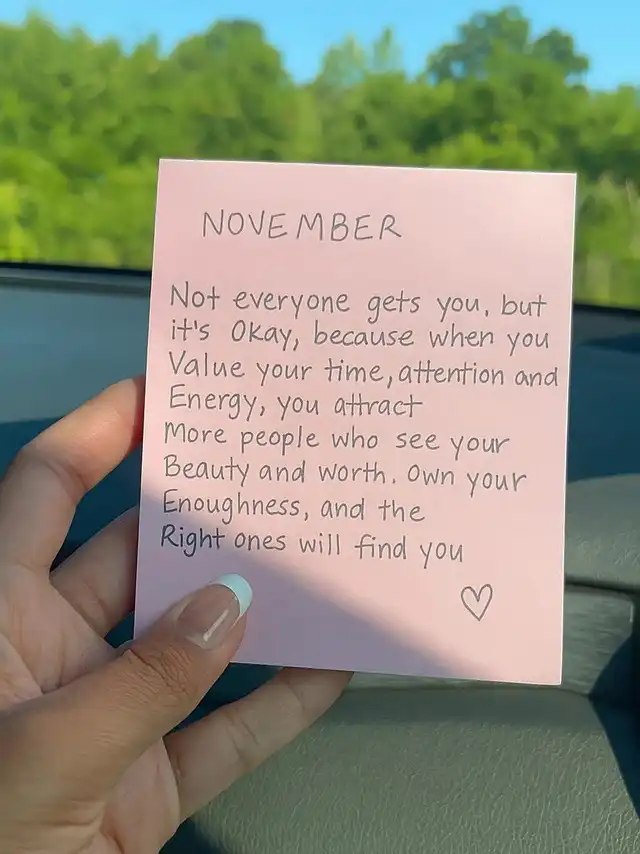 NOVEMBER
Not everyone gets you, but
it's Okay, because when you
Value your time, attention and
Energy, you attract
More people who see your
Beauty and worth. Own your
Enoughness, and the
Right ones will find you